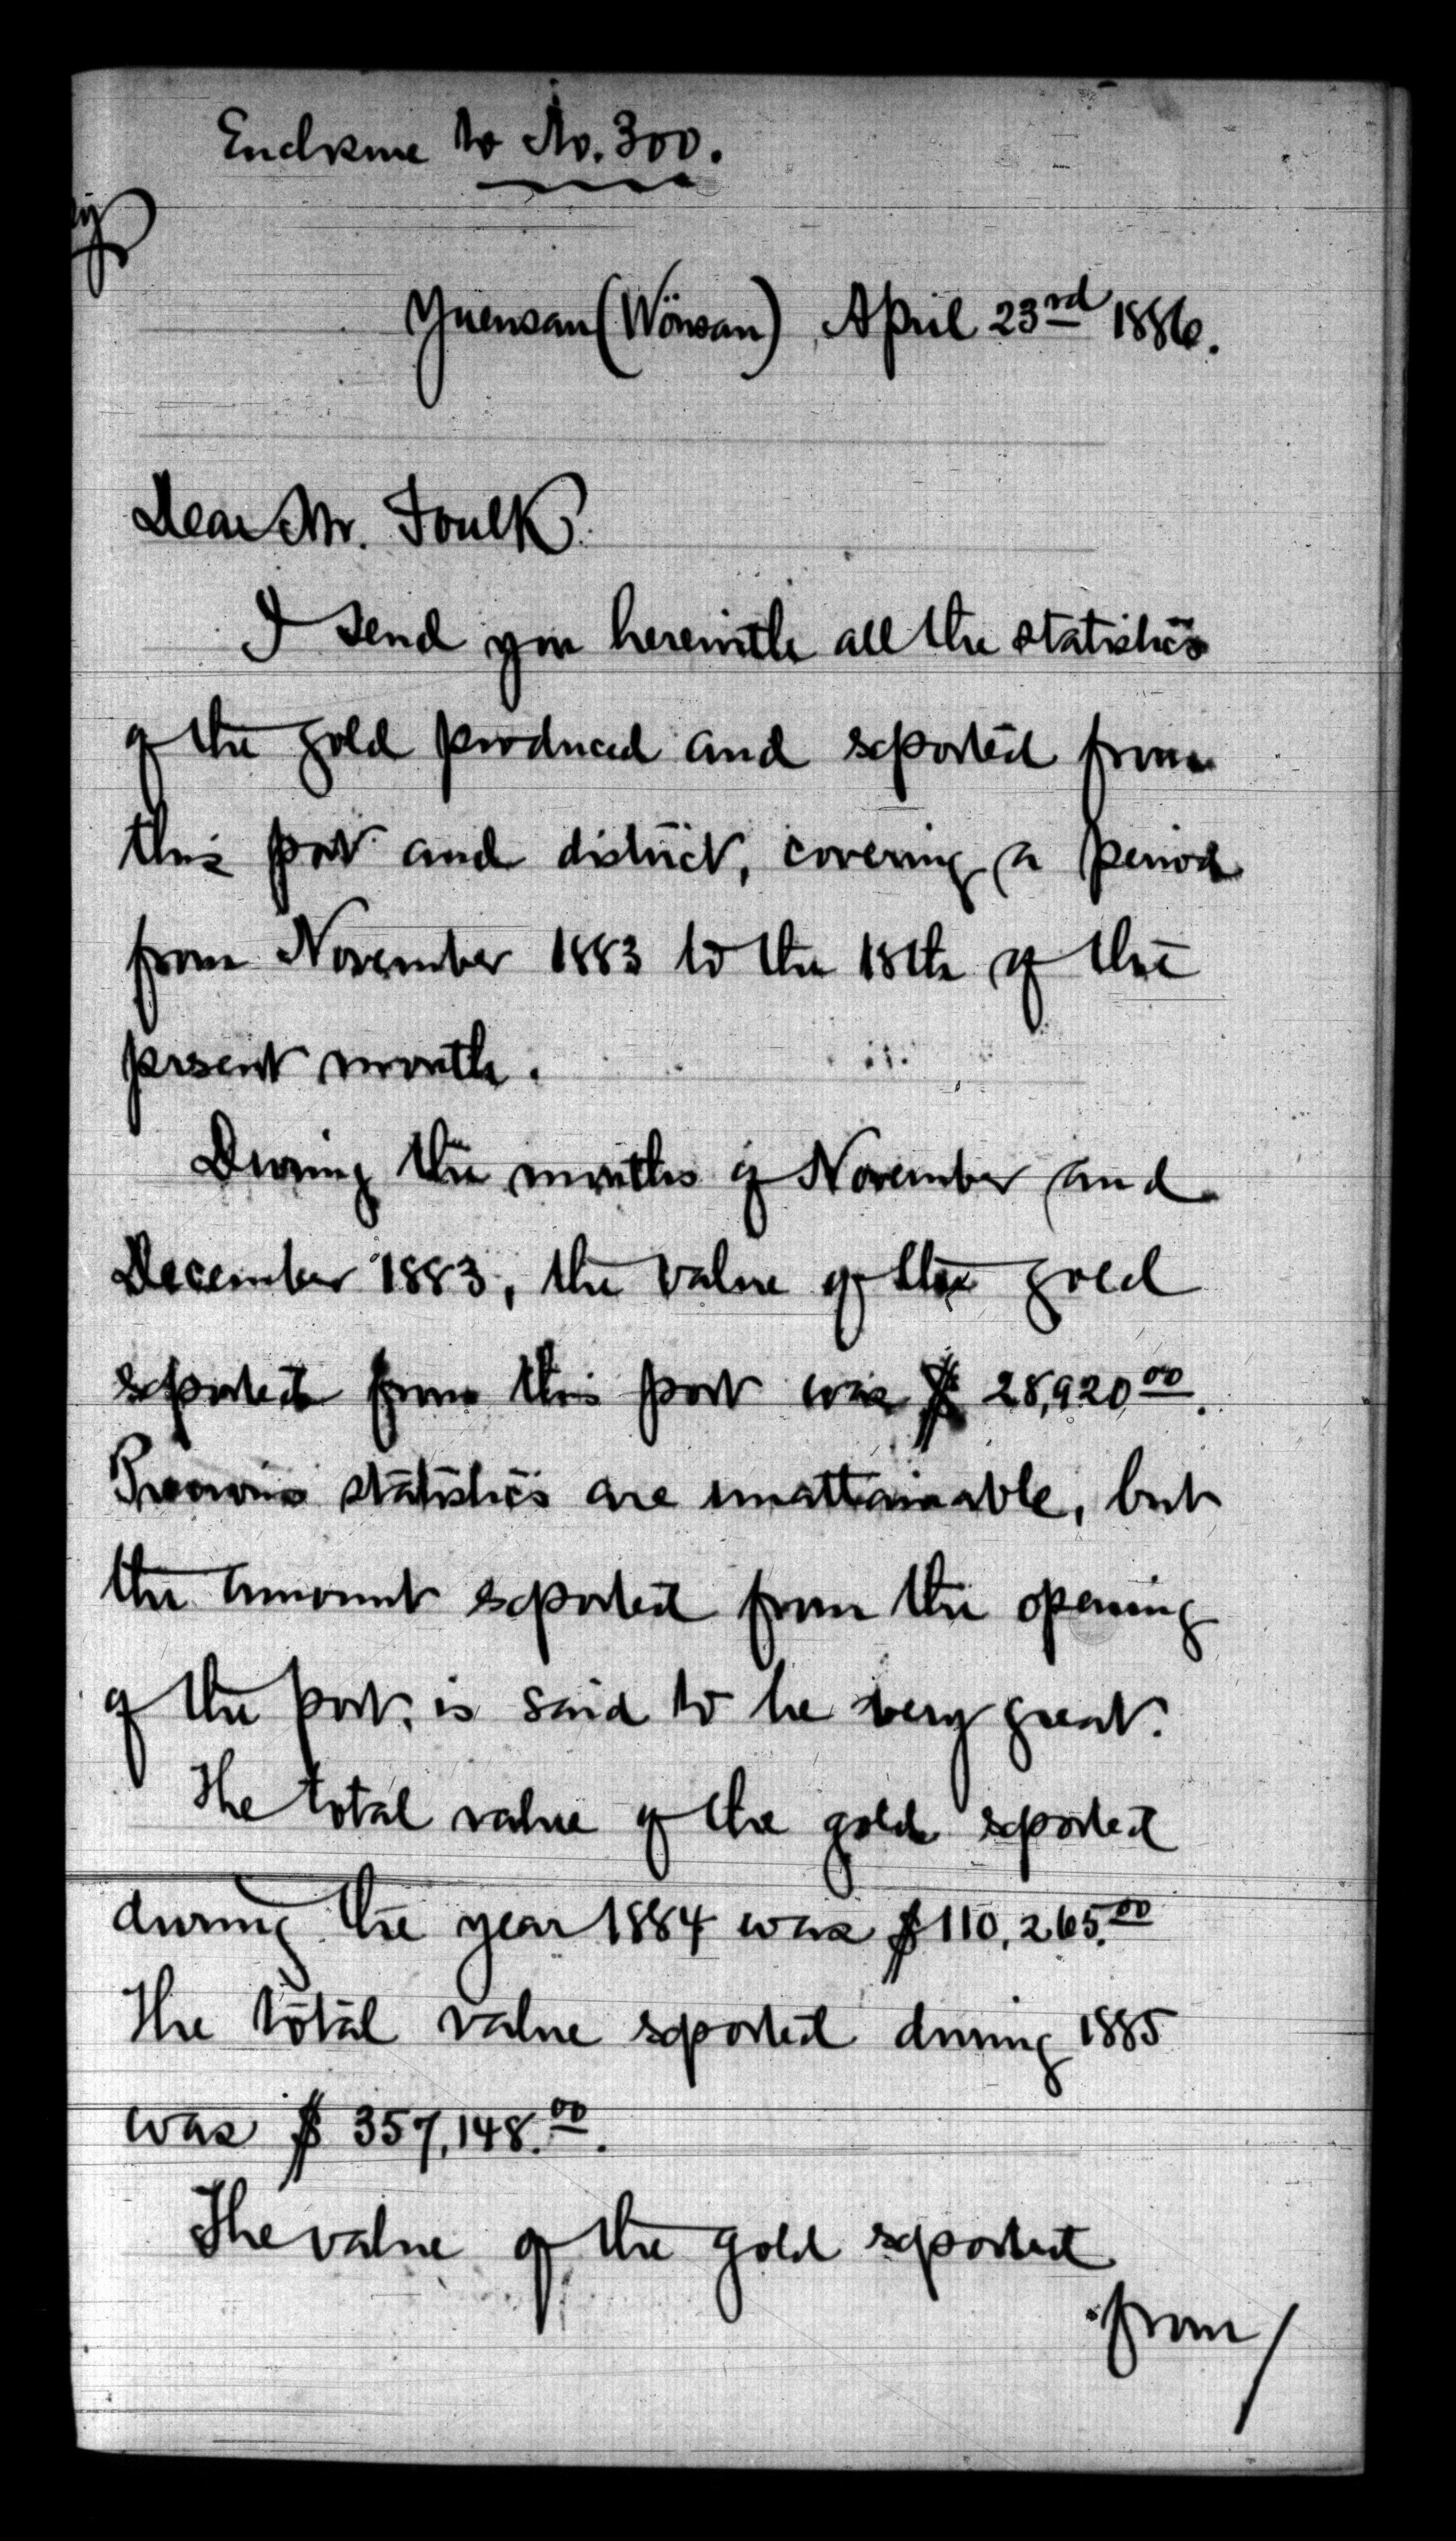 Enclosure to No. 300.
Yuensan (Wönsan) April 23rd 1886.
Dear Mr. Foulk.
I send you herewith all the statistics
of the gold produced and exported from
this port and district, covering a period
from November 1883 to the 18th of the
present month.
During the months of November and
December 1883, the value of the gold
exported from this port was $ 28,920 00.
Previous statistics are unattainable, but
the amount exported from the opening
of the port, is said to be very great.
The total value of the gold exported
during the year 1884 was $110,265.00
The total value exported during 1885
was $ 357,148.00.
The value of the gold exported
from/